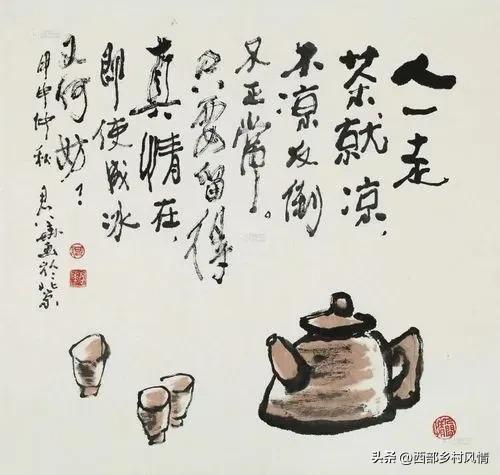 人一走
茶就凉，
不凉反倒
不正常。
只要留得
真情在，
即使成冰
又何妨？
甲申仲秋
画於北京
头条 @西部乡村风情